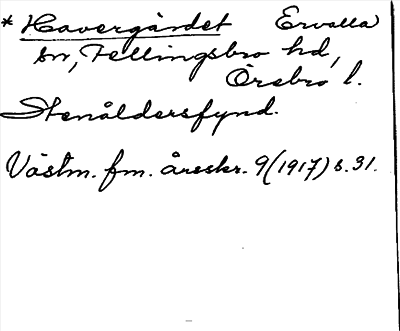 * Havergärdet Ervalla
sn, Fellingsbro hd,
Örebro l.
Stenåldersfynd.
Västm. fm. årsskr. 9 (1917) s. 31.